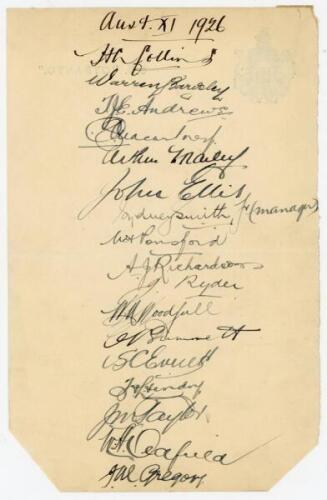 Aust. XI 1926
H L Collins
Warren Bardsley
T J E Andrews
C G Macartney
Arthur Mailey
John Ellis
Sydney Smith, Jr (manager)
W H Ponsford
A J Richardson
J Ryder
W M Woodfull
C V Grimmett
S C Everett
H Hendry
J M Taylor
W A Oldfield
J. M. Gregory